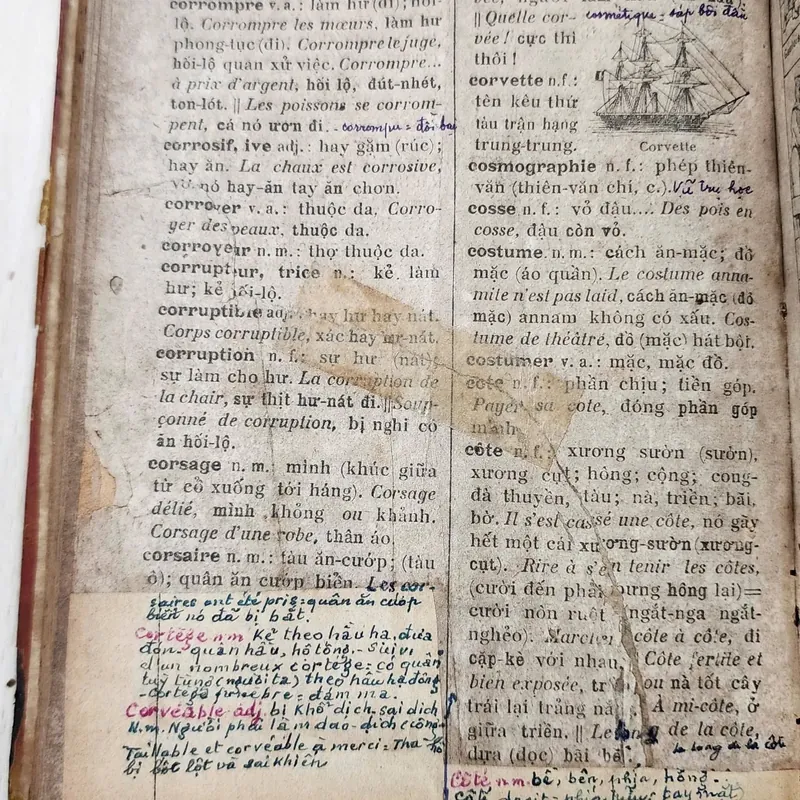 corrompre v. a.: làm hư (đi); hối-
lộ. Corrompre les mœurs, làm hư
phong-tục (đi). Corrompre le juge,
hối-lộ quan xử việc. Corrompre...
à prix d'argent, hối lộ, đút-nhét,
ton-lót. || Les poissons se corrom-
pent, cá nó ươn đi. - corrompu = đồi bại
corrosif, ive adj.: hay gặm (rúc);
hay ăn. La chaux est corrosive,
vôi nó hay-ăn tay ăn chơn.
corroyer v. a.: thuộc da. Corro-
yer des peaux, thuộc da.
corroyeur n. m.: thợ thuộc da.
corrupteur, trice n.: kẻ làm
hư; kẻ hối-lộ.
corruptible adj.: hay hư hay nát.
Corps corruptible, xác hay hư-nát.
corruption n. f.: sự hư (nát);
sự làm cho hư. La corruption de
la chair, sự thịt hư-nát đi. || Soup-
çonné de corruption, bị nghi có
ăn hối-lộ.
corsage n. m.: mình (khúc giữa
từ cổ xuống tới háng). Corsage
délié, mình khỏng ou khảnh.
Corsage d'une robe, thân áo.
corsaire n. m.: tàu ăn-cướp; (tàu
ô); quân ăn cướp biển. Les cor-
saires ont été pris = quân ăn cướp
biển nó đã bị bắt.
Cortège n.m Kẻ theo hầu hạ, đưa
đón - quân hầu, hộ tống. - Suivi
d'un nombreux cortège = có quân
tuỳ tùng theo hầu hạ đông
- Cortège funèbre = đám ma.
Corvéable adj. bị khổ dịch, sai dịch
N.m. Người phải làm dao-dịch
Taillable et corvéable à merci = Tha hồ
bị bột lột và sai khiến
|| Quelle cor- cosmétique = sáp bôi đầu
vée! cực thì
thôi!
corvette n. f.:
tên kêu thứ
tàu trận hạng
trung-trung.
Corvette
cosmographie n. f.: phép thiên-
văn (thiên-văn chí, c.). Vũ trụ học
cosse n. f.: vỏ đậu.... Des pois en
cosse, đậu còn vỏ.
costume n. m.: cách ăn-mặc; đồ
mặc (áo quần). Le costume anna-
mite n'est pas laid, cách ăn-mặc (đồ
mặc) annam không có xấu. Cos-
tume de théâtre, đồ (mặc) hát bội.
costumer v. a.: mặc, mặc đồ.
cote n. f.: phần chịu; tiền góp.
Payer sa cote, đóng phần góp
mình.
côte n. f.: xương sườn (sườn),
xương cụt; hông; cộng; cong-
đà thuyền, tàu; nà, triền; bãi,
bờ. Il s'est cassé une côte, nó gãy
hết một cái xương-sườn (xương-
cụt). Rire à s'en tenir les côtes,
(cười đến phải bưng hông lại)=
cười nôn ruột (ngất-nga ngất-
nghẻo). Marcher côte à côte, đi
cặp-kè với nhau. Côte fertile et
bien exposée, ou nà tốt cây
trái lại trảng nà. À mi-côte, ở
giữa triền. || Le long de la côte,
dựa (dọc) bãi bể. le long de la côte
Côté n.m. bề, bên, phía, hông.